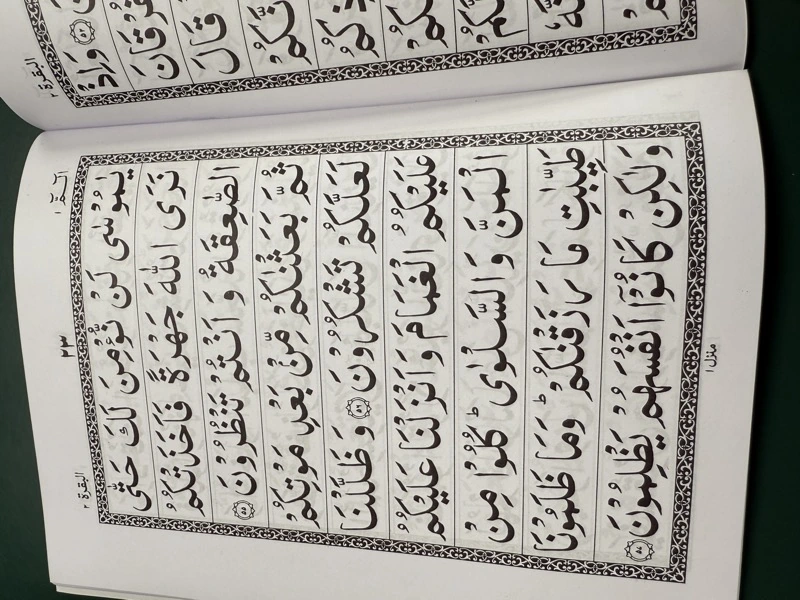 البقرة ٢
وَاِذْ
قَالَ
الٓمّٓ ١
٢٣
البقرة ٢
يٰمُوْسٰى لَنْ نُّؤْمِنَ لَكَ حَتّٰى
نَرَى اللّٰهَ جَهْرَةً فَاَخَذَتْكُمُ
الصّٰعِقَةُ وَاَنْتُمْ تَنْظُرُوْنَ ٥٥
ثُمَّ بَعَثْنٰكُمْ مِّنْۢ بَعْدِ مَوْتِكُمْ
لَعَلَّكُمْ تَشْكُرُوْنَ ٥٦ وَظَلَّلْنَا
عَلَيْكُمُ الْغَمَامَ وَاَنْزَلْنَا عَلَيْكُمُ
الْمَنَّ وَالسَّلْوٰى ؕ كُلُوْا مِنْ
طَيِّبٰتِ مَا رَزَقْنٰكُمْ ؕ وَمَا ظَلَمُوْنَا
وَلٰكِنْ كَانُوْۤا اَنْفُسَهُمْ يَظْلِمُوْنَ ٥٧
منزل ١